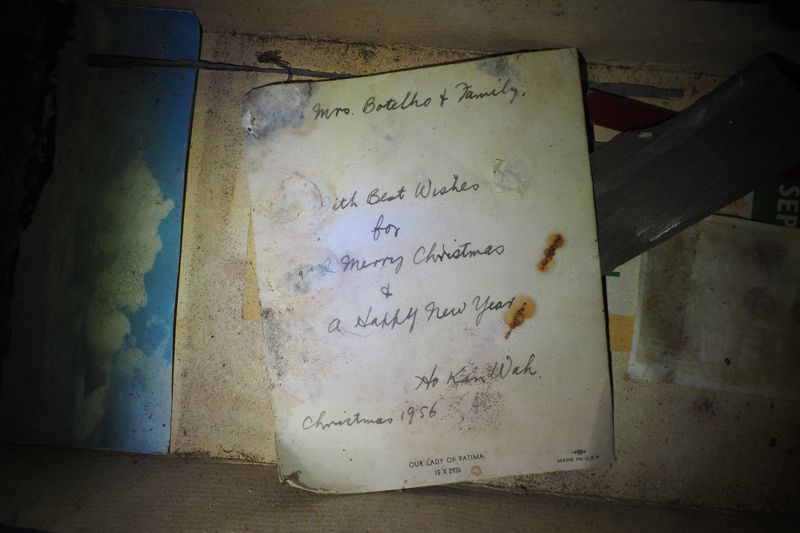 Mrs. Botelho & Family,
With Best Wishes
for
a Merry Christmas
&
a Happy New Year
Ho Kin Wah.
Christmas 1956
OUR LADY OF FATIMA
IS X 2926
MADE IN U.S.A.
SEP